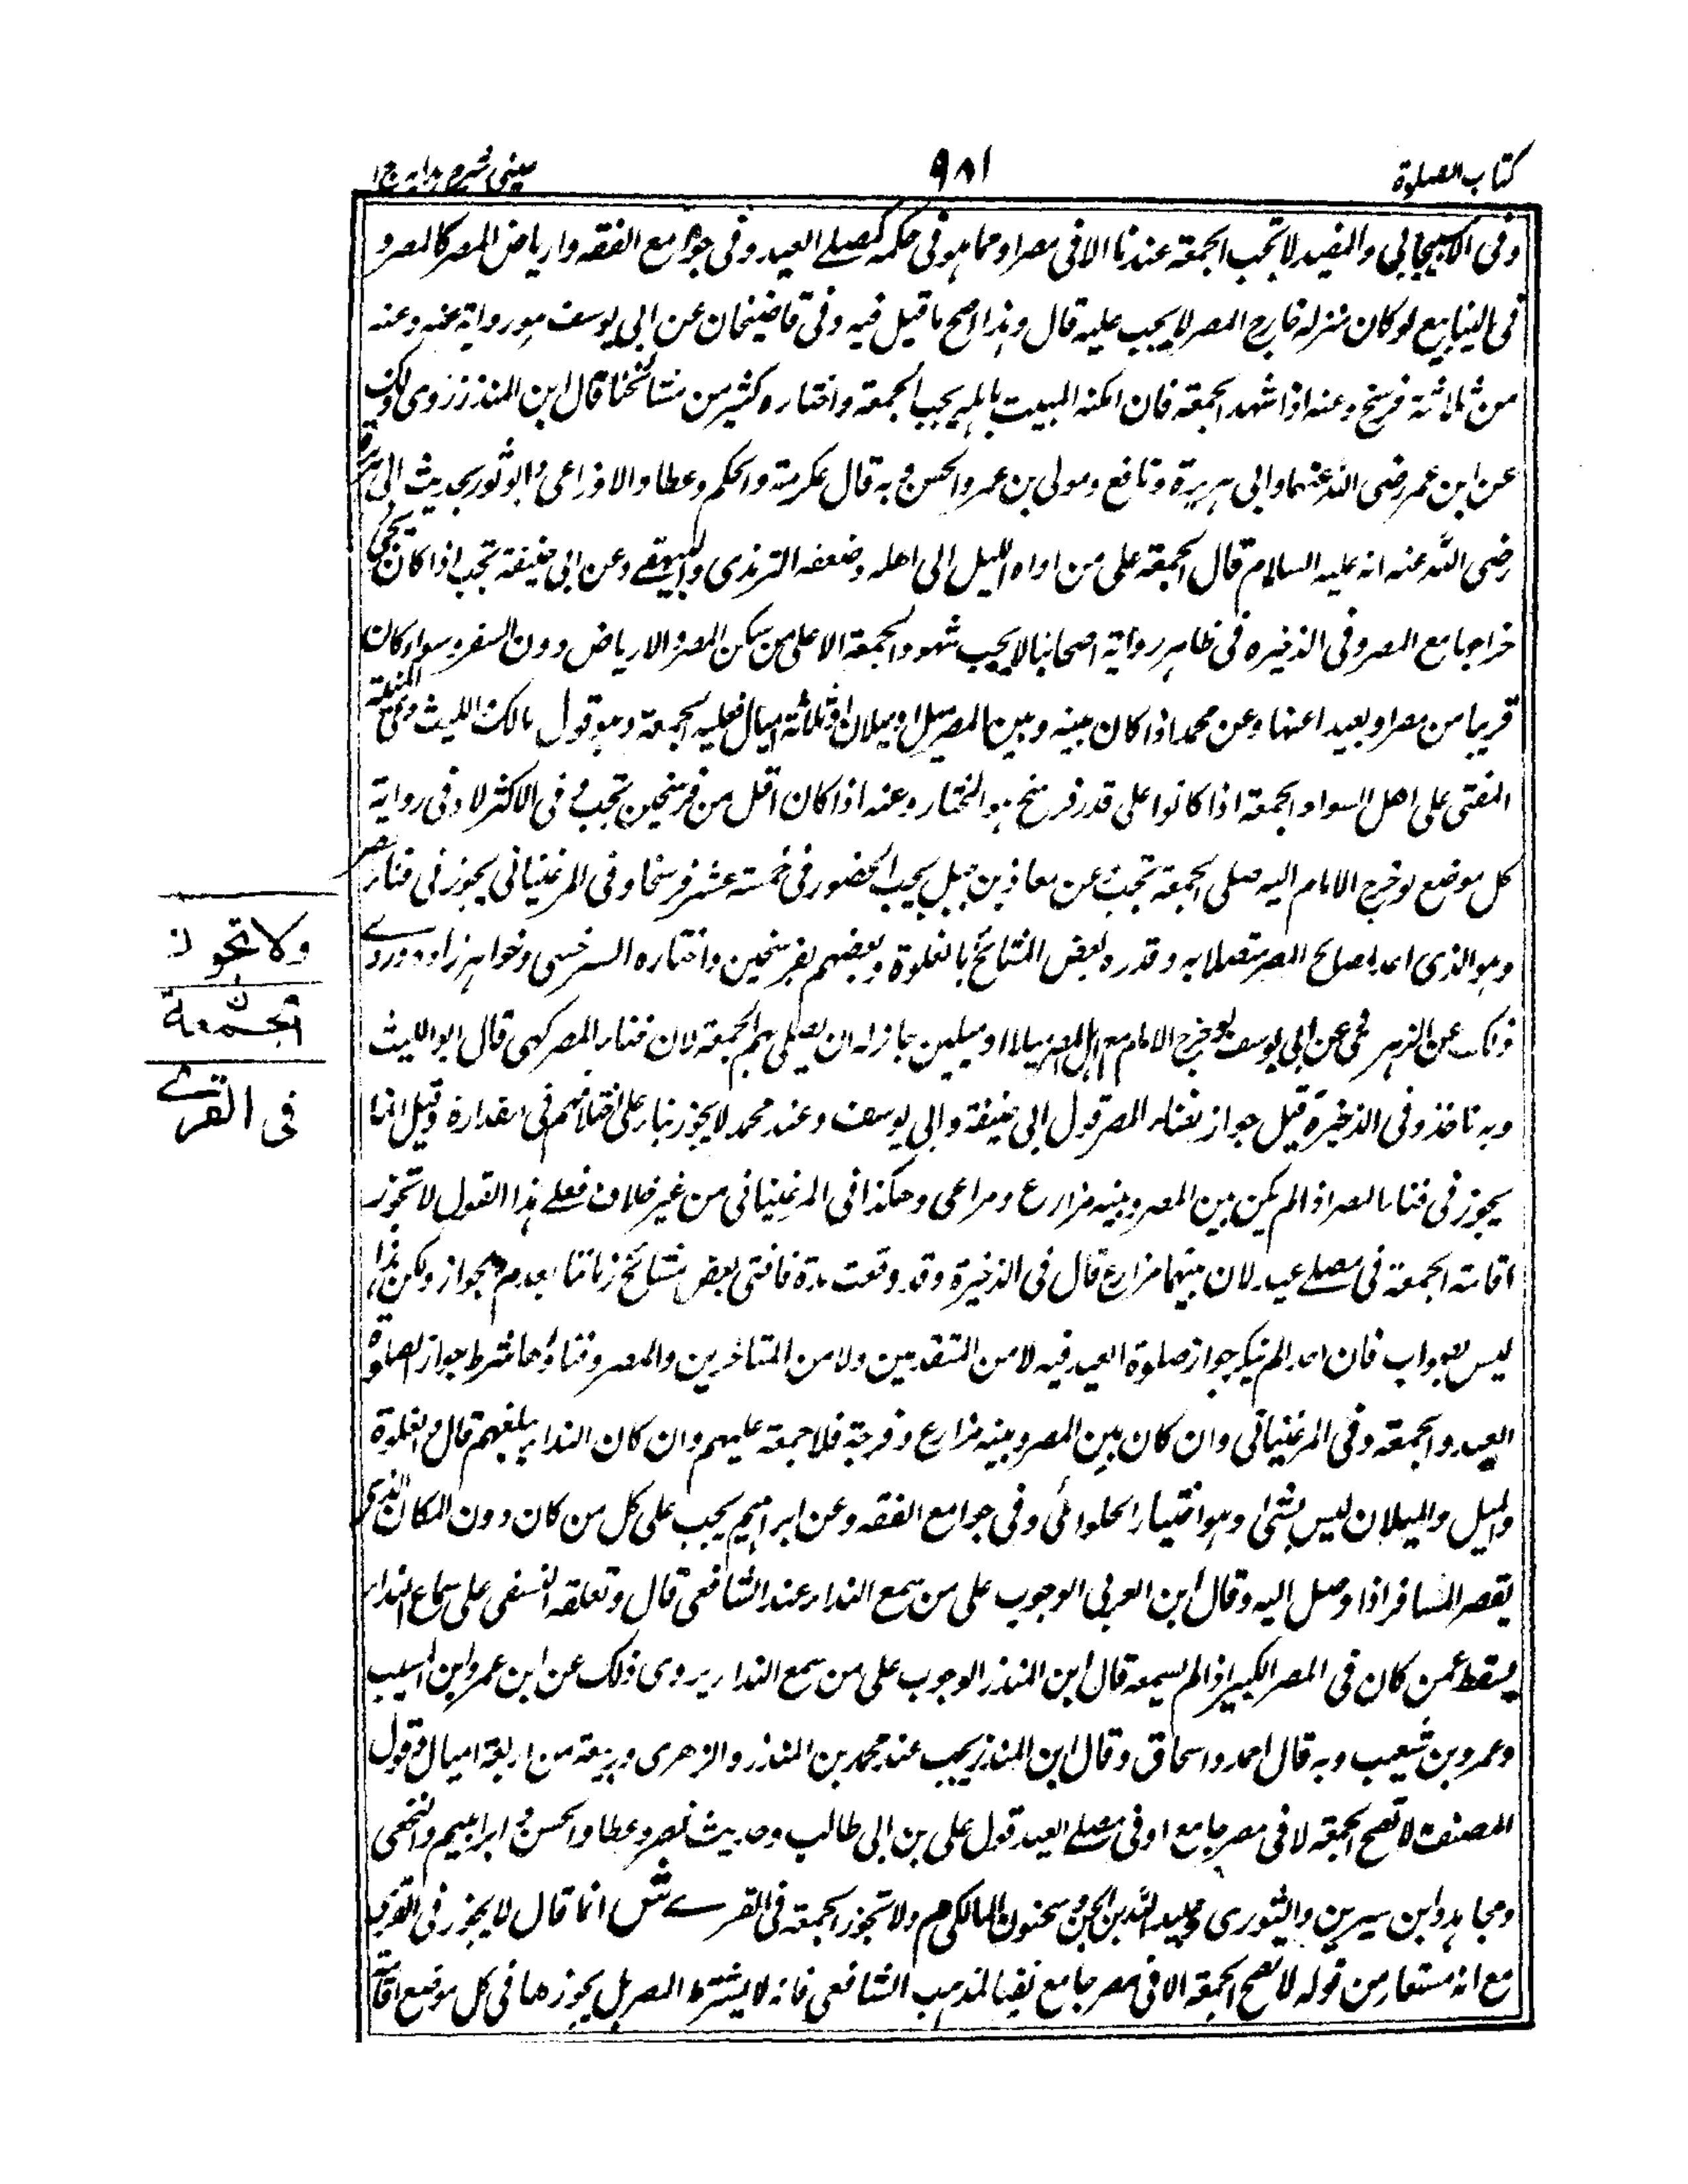 كتاب الصلوة
٩٨١
عينى شرح هدايه ج ١
وفى الاسبيجابى والمفيد لا تجب الجمعة عندنا الا فى مصر او مما هو فى حكمه كمصلے العيد وفى جوامع الفقه وارياض المصر كالمصر و
فى الينابيع لو كان منزله خارج المصر لا يجب عليه قال وهذا اصح ما قيل فيه وفى قاضيخان عن ابى يوسف هو رواية عنه وعنه
من ثلاثة فرسخ وعنه اذا شهد الجمعة فان امكنه المبيت باهله يجب الجمعة واختاره كثير من مشائخنا قال ابن المنذر روى ذلك
عن ابن عمر رضى الله عنهما وابى هريرة ونافع ومولى بن عمر والحسن وبه قال عكرمة والحكم وعطا والاوزاعى وابو ثور بحديث ابى هريرة
رضى الله عنه انه عليه السلام قال الجمعة على من اواه الليل الى اهله وضعفه الترمذى والبيهقے وعن ابى حنيفة تجب اذا كان يجى
خراجها مع المصر وفى الذخيره فى ظاهر رواية اصحابنا لا يجب شهود الجمعة الا على من سكن المصر والارياض دون السفر وسواء كان
قريبا من مصر او بعيدا عنها وعن محمد اذا كان بينه وبين المصر ميل او ميلان او ثلاثة اميال فعليه الجمعة وهو قول مالك الليث وفى المنية
المفتى على اهل السواد الجمعة اذا كانوا على قدر فرسخ هو المختار وعنه اذا كان اقل من فرسخين تجب وفى الاكثر لا وفى رواية
كل موضع لو خرج الامام اليه صلى الجمعة تجب وعن معاذ بن جبل يجب الحضور فى خمسة عشر فرسخا وفى المرغينانى يجوز فى فناء المصر
وهو الذى اعد لمصالح المصر متصلا به وقدره بعض المشائخ بالغلوة وبعضهم بفرسخين واختاره السرخسى وخواهر زاده وروے
ذلك عن الزهرى عن ابى يوسف لو خرج الامام مع اهل المصر ميلا او ميلين جاز له ان يصلى بهم الجمعة لان فناء المصر كهى قال ابو الليث
وبه ناخذ وفى الذخيرة قيل جواز بفناء المصر قول ابى حنيفة وابى يوسف وعند محمد لا يجوز بناء على اختلافهم فى مقداره وقيل انما
يجوز فى فناء المصر اذا لم يكن بين المصر وبينه مزارع ومراعى وهكذا فى المرغينانى من غير خلاف فعلے هذا القول لا تجوز
اقامة الجمعة فى مصلے عيد لان بينهما مزارع قال فى الذخيرة وقد وقعت مدة فافتى بعض مشائخ زماننا بعدم الجواز ولكن هذا
ليس بصواب فان احدا لم ينكر جواز صلوة العيد فيه لا من المتقدمين ولا من المتاخرين والمصر وفناؤها شرط جواز الصلوة
العيد والجمعة وفى المرغينانى وان كان بين المصر وبينه مزارع وفرجة فلا جمعة عليهم وان كان النداء يبلغهم قال والغلوة
والميل والميلان ليس بشئ وهو اختيار الحلوائى وفى جوامع الفقه وعن ابراهيم يجب على كل من كان دون المكان الذى
يقصر المسافر اذا وصل اليه وقال ابن العربى الوجوب على من سمع النداء عند الشافعى قال وتعلقه السفى على سماع النداء
يسقط عمن كان فى المصر الكبير اذا لم يسمعه قال ابن المنذر الوجوب على من سمع النداء يروى ذلك عن ابن عمر وابن المسيب
وعمرو بن شعيب وبه قال احمد واسحاق وقال ابن المنذر يجب عند محمد بن المنذر والزهرى وربيعة من اربعة اميال وقول
المصنف لا تصح الجمعة لا فى مصر جامع او فى مصلے العيد قول على بن ابى طالب وحديث نصر وعطا والحسن وابراهيم والنخعى
ومجاهد وابن سيرين والثورى وعبيد الله بن الحسن وسحنون المالكى م ولا تجوز الجمعة فى القرے ش انما قال لا يجوز فى القرى
مع انه مستعار من قوله لا تصح الجمعة الا فى مصر جامع نفيا لمذهب الشافعى فانه لا يشترط المصر بل يجوزها فى كل موضع اقامة
ولا تجوز
الجمعة
فى القرے